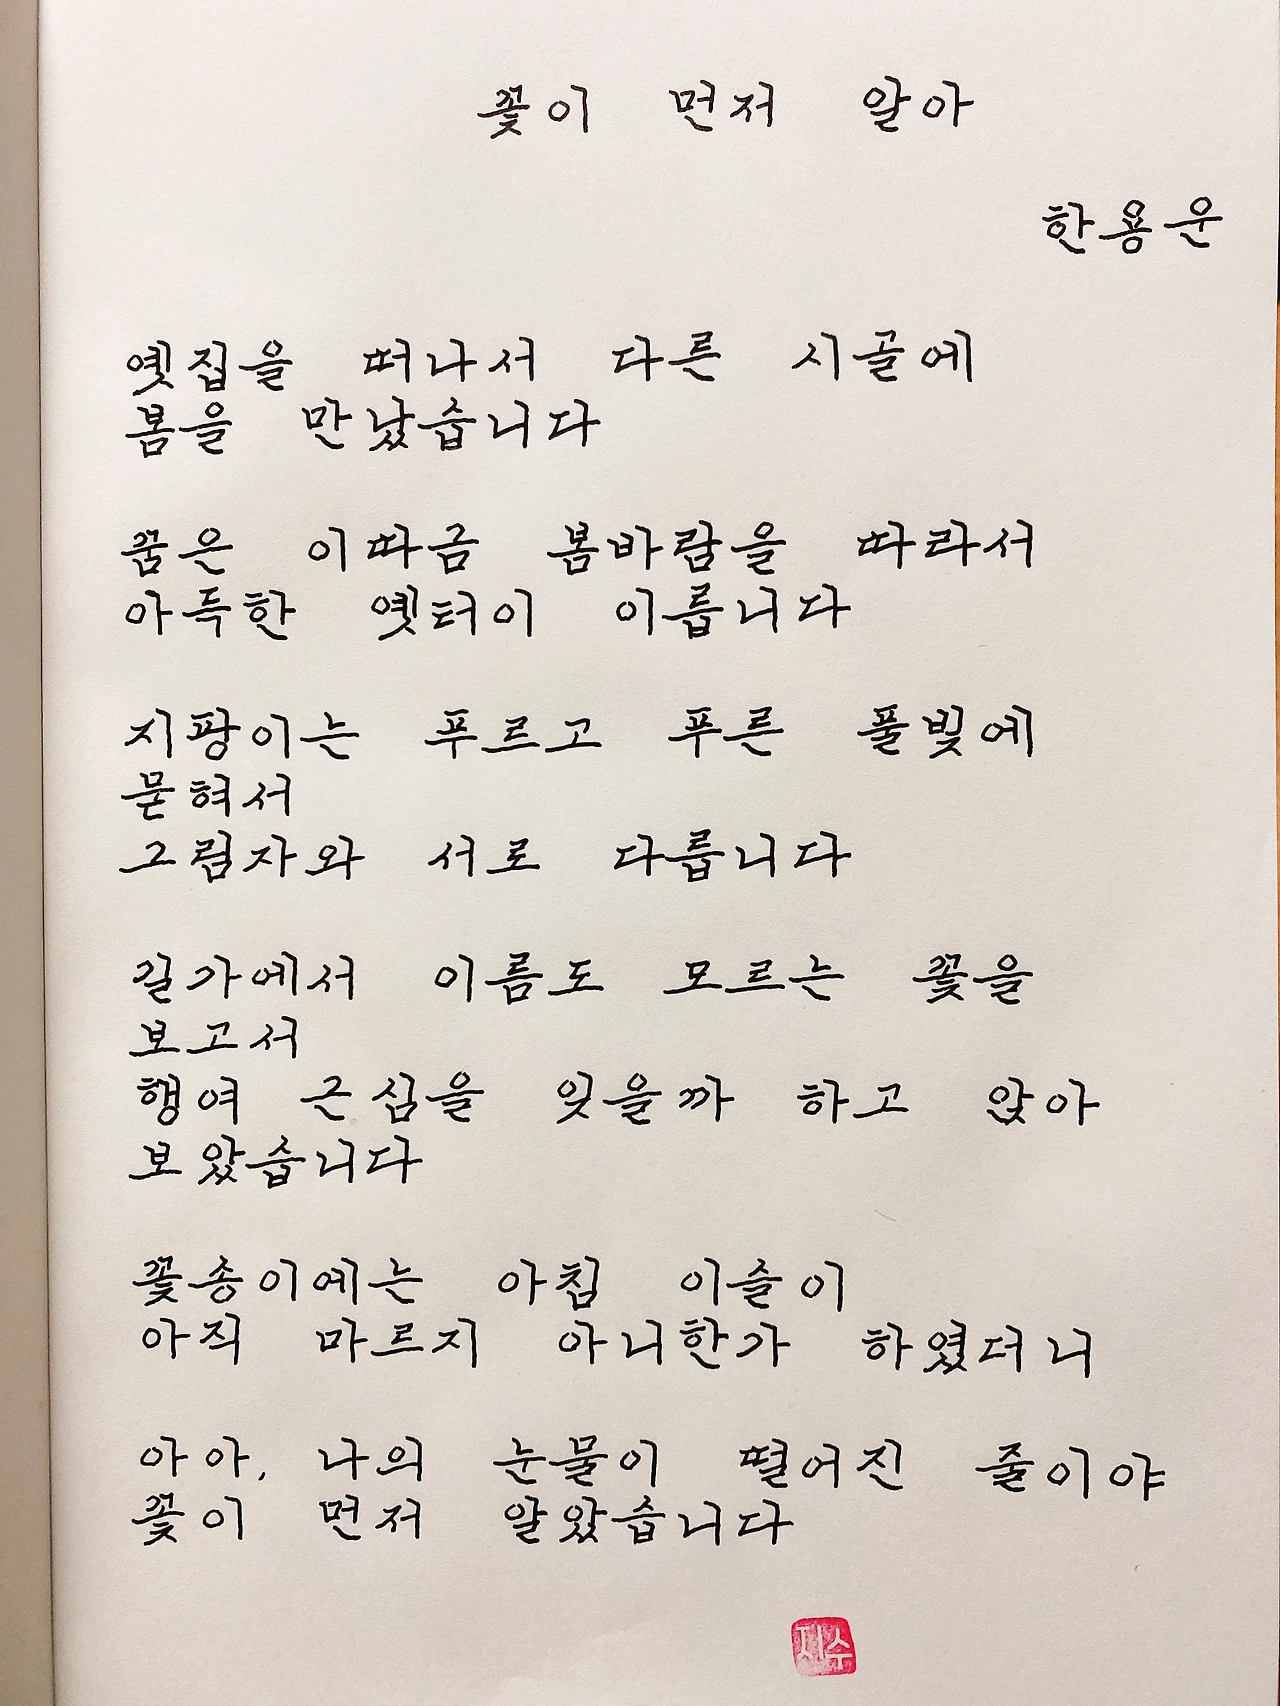 꽃이 먼저 알아
한용운
옛집을 떠나서 다른 시골에
봄을 만났습니다
꿈은 이따금 봄바람을 따라서
아득한 옛터이 이릅니다
지팡이는 푸르고 푸른 풀빛에
묻혀서
그림자와 서로 다릅니다
길가에서 이름도 모르는 꽃을
보고서
행여 근심을 잊을까 하고 앉아
보았습니다
꽃송이에는 아침 이슬이
아직 마르지 아니한가 하였더니
아아, 나의 눈물이 떨어진 줄이야
꽃이 먼저 알았습니다